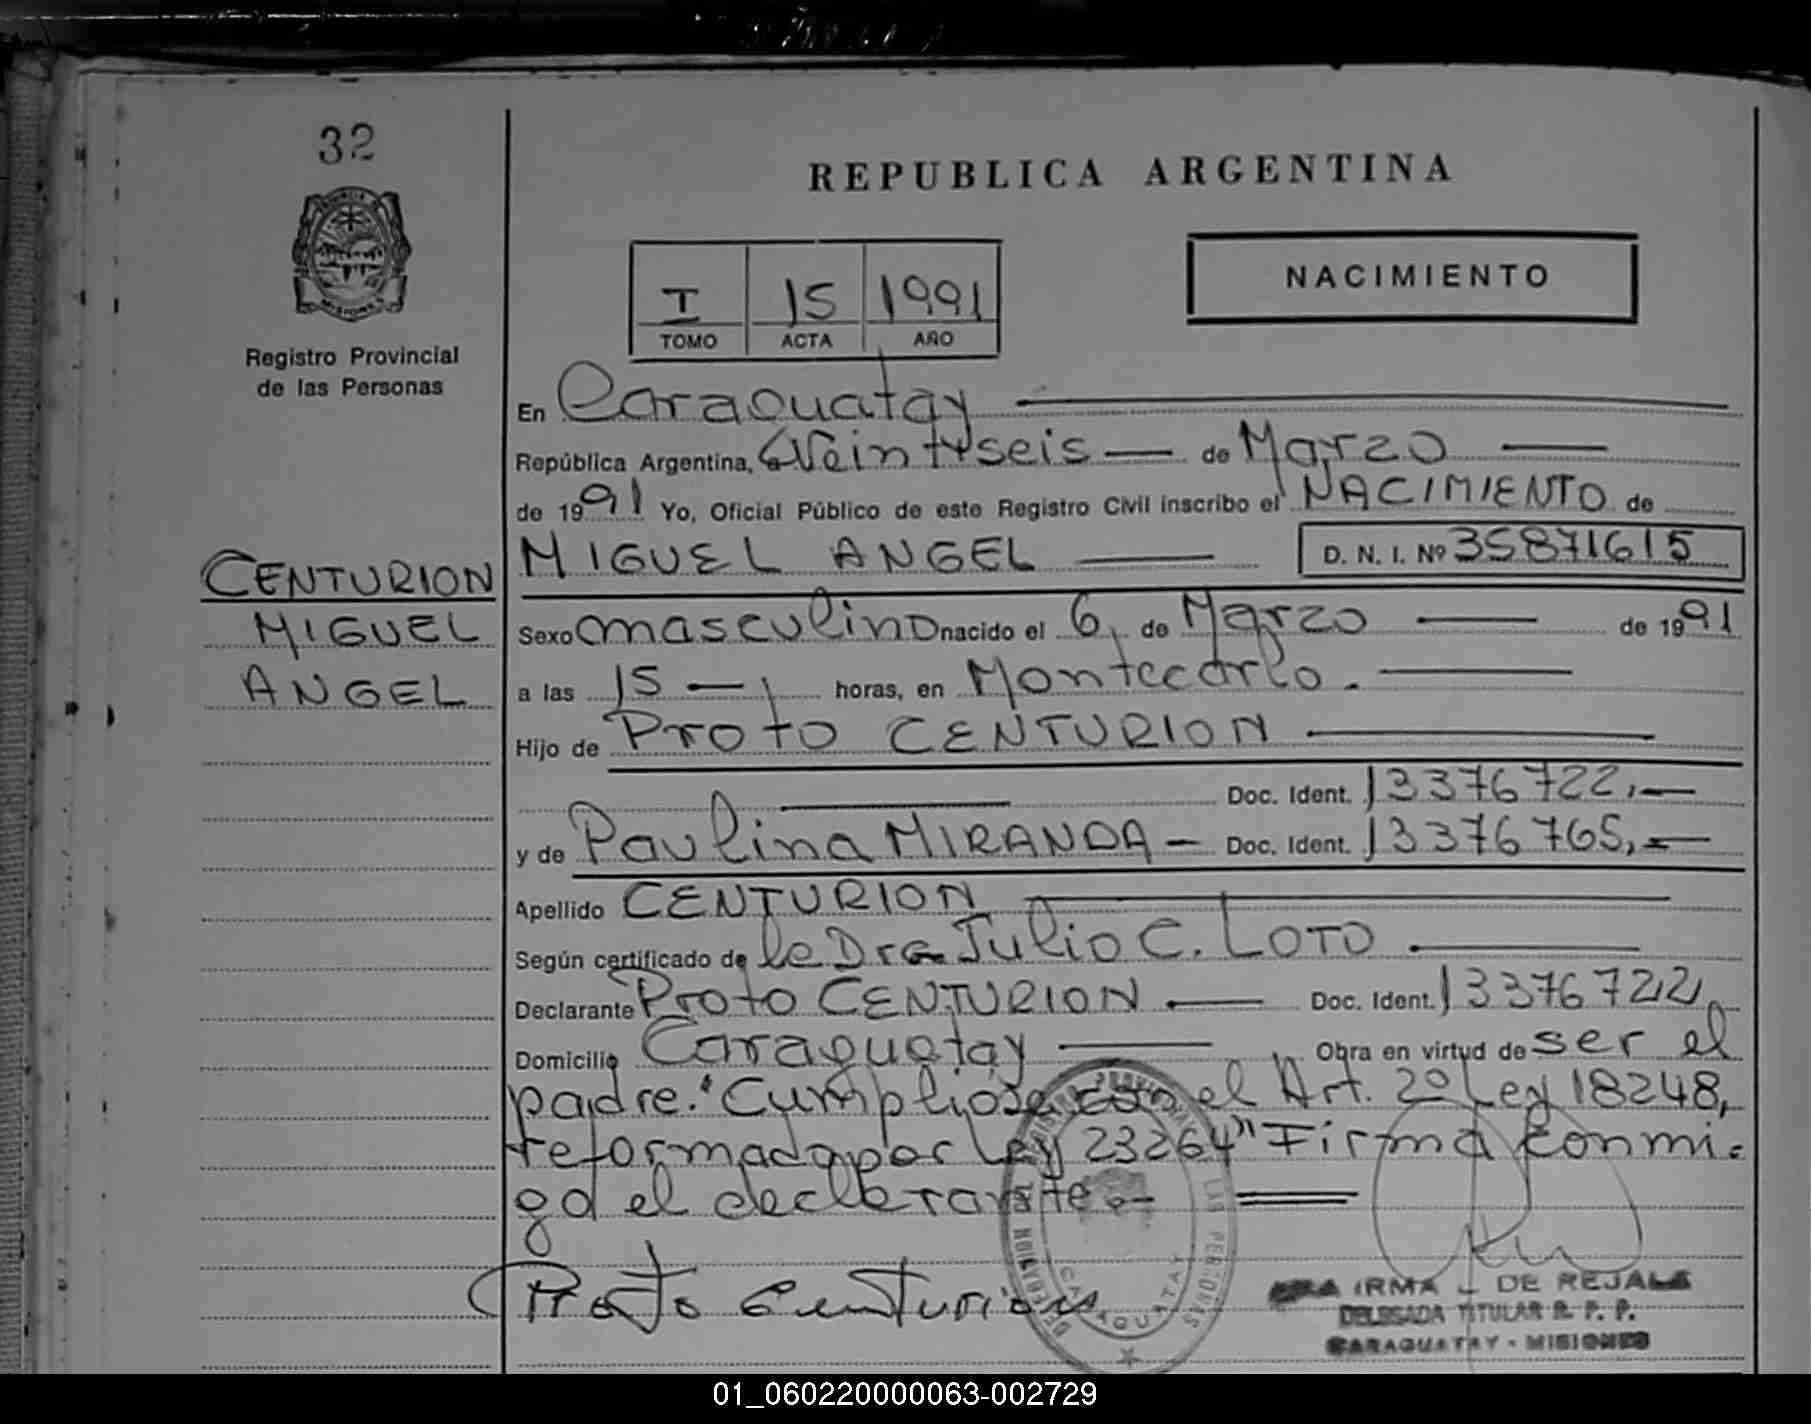 32
REPUBLICA ARGENTINA
I 15 1991
TOMO ACTA AÑO
NACIMIENTO
Registro Provincial
de las Personas
En Caraguatay
República Argentina, a Veintiseis de Marzo
de 1991 Yo, Oficial Público de este Registro Civil inscribo el NACIMIENTO de
CENTURION
MIGUEL
ANGEL
MIGUEL ANGEL D. N. I. Nº 35871615
Sexo masculino nacido el 6, de Marzo de 1991
a las 15 horas, en Montecarlo.
Hijo de Proto CENTURION
Doc. Ident. 13376722,
y de Paulina MIRANDA Doc. Ident. 13376765,
Apellido CENTURION
Según certificado de Julio C. LOTO
Declarante Proto CENTURION Doc. Ident. 13376722
Domicilio Caraguatay Obra en virtud de ser el
padre. "Cumplióse con el Art. 2º Ley 18248,
reformado por Ley 23264" Firma conmi-
go el declarante.
Proto Centurion
IRMA DE REJALA
DELEGADA TITULAR R. P. P.
CARAGUATAY - MISIONES
CARAGUATAY
01_060220000063-002729